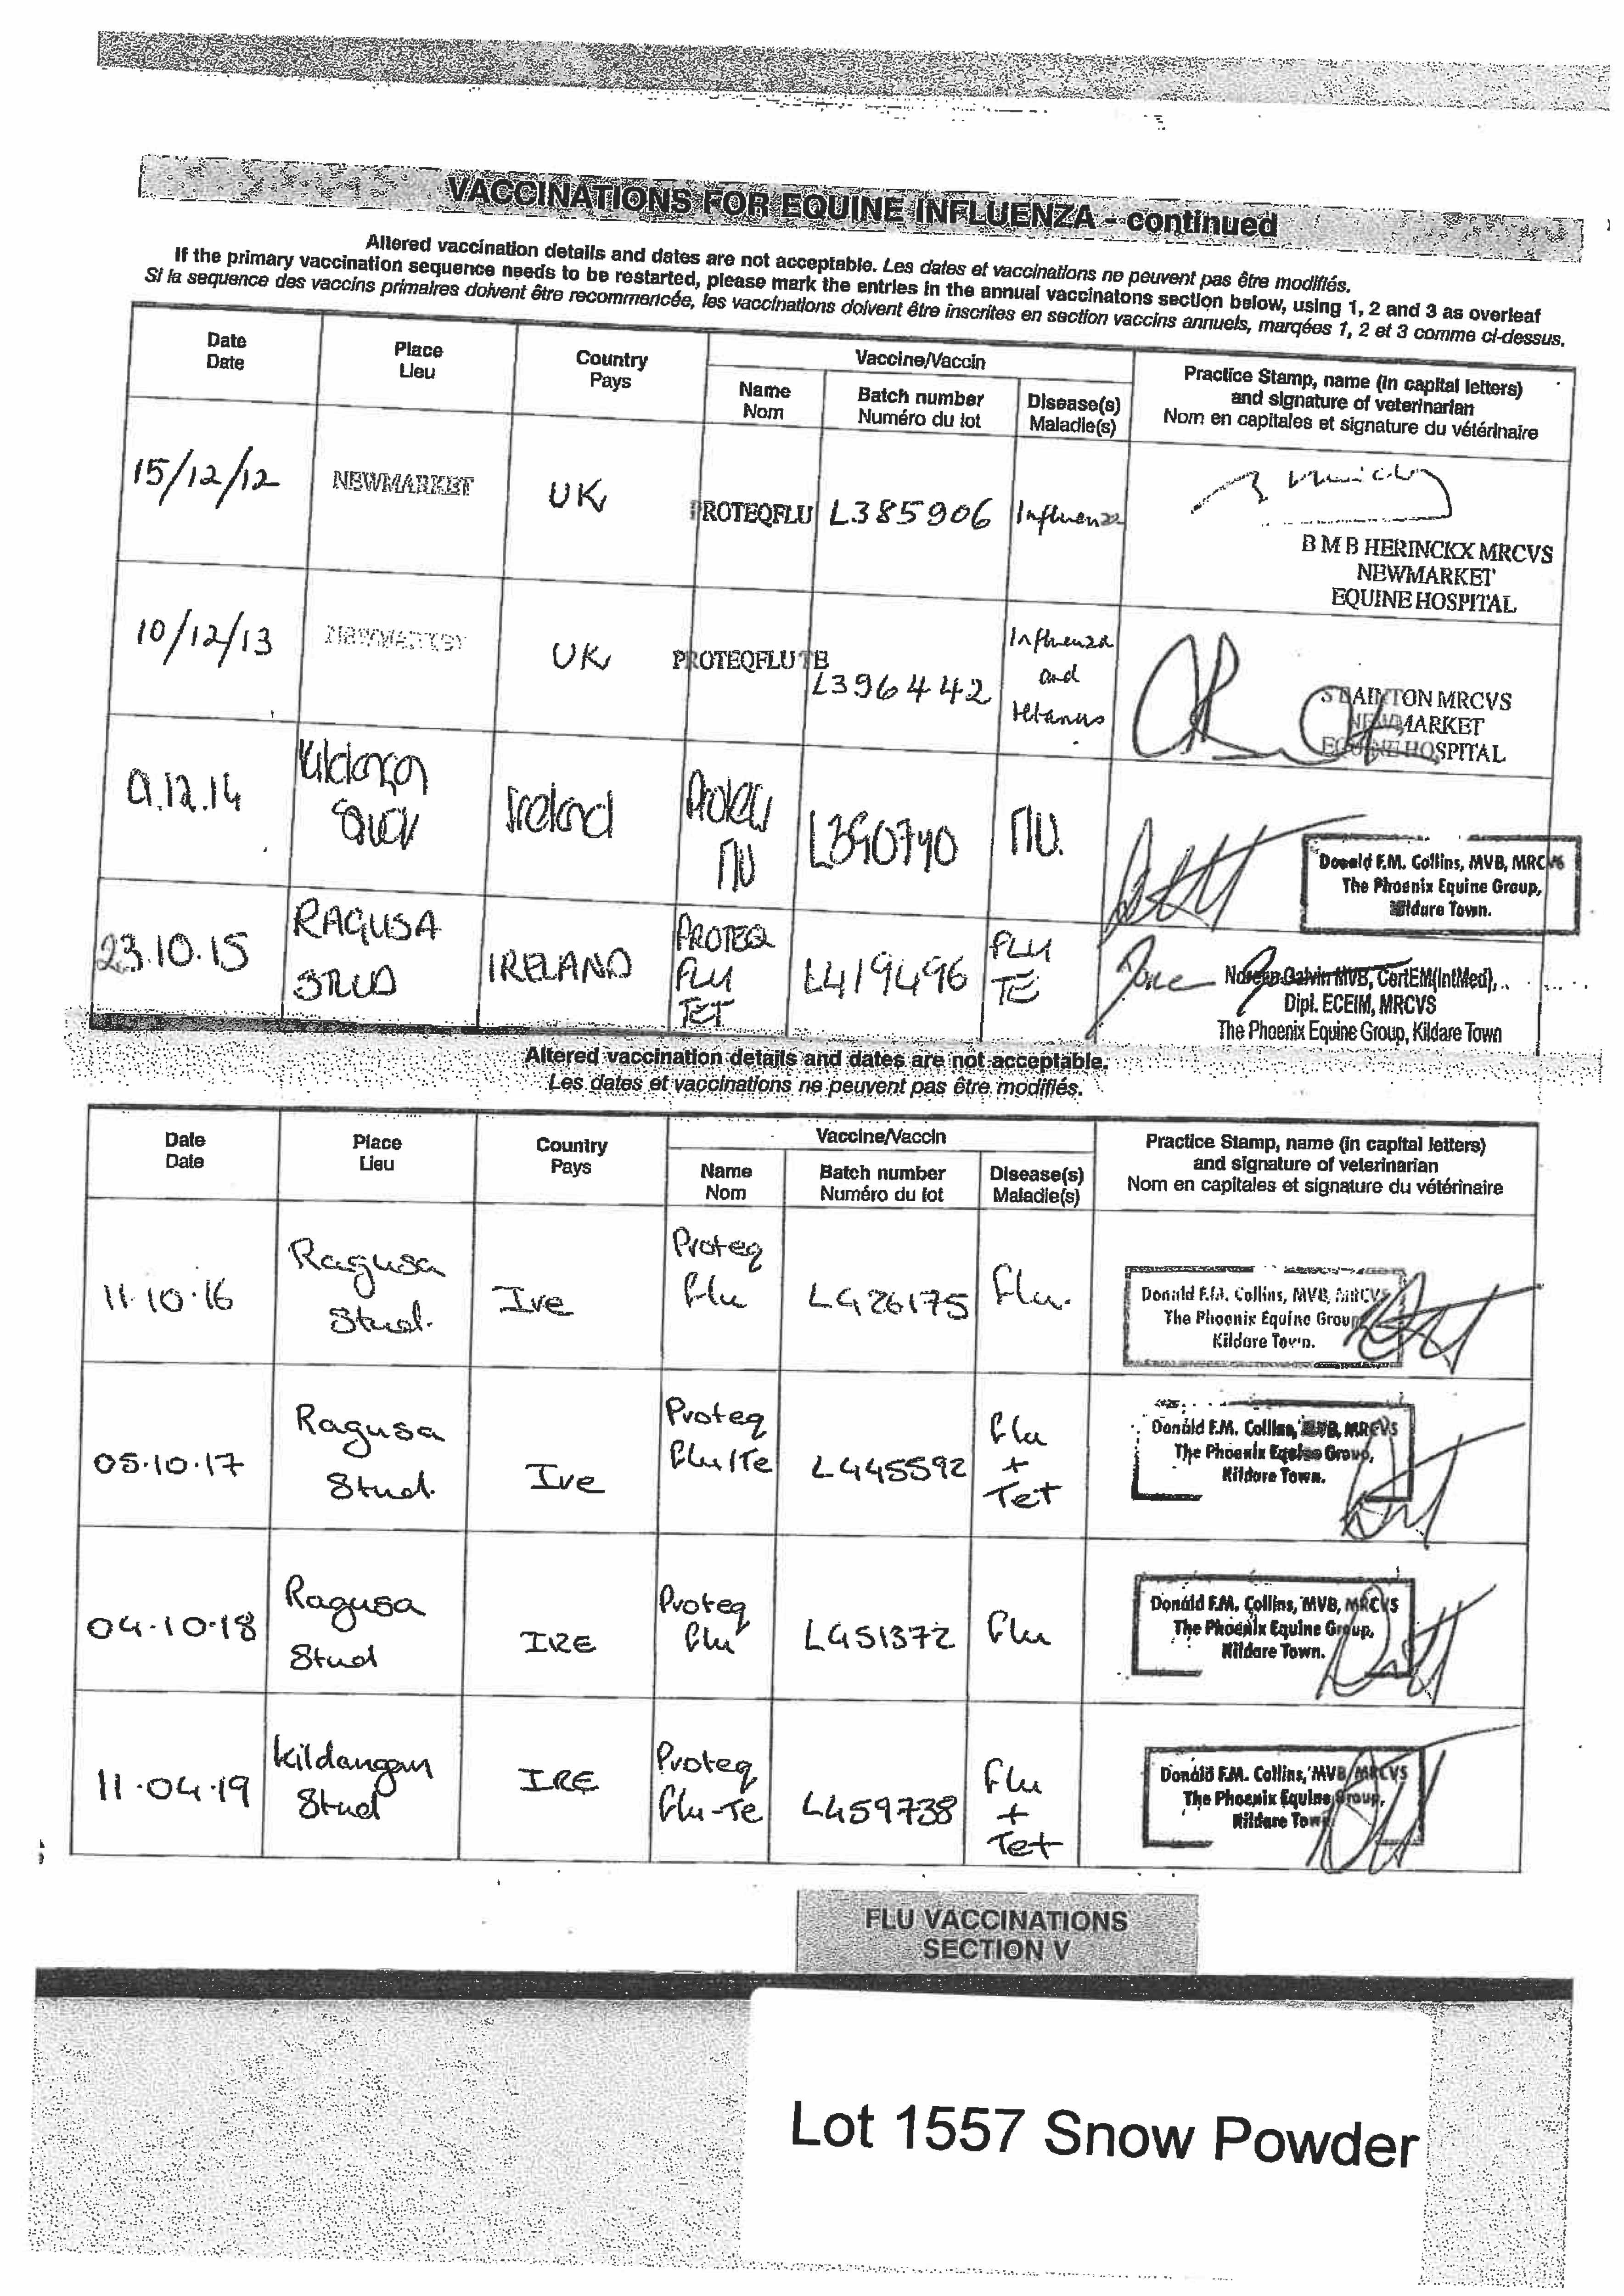 VACCINATIONS FOR EQUINE INFLUENZA - continued
Altered vaccination details and dates are not acceptable. Les dates et vaccinations ne peuvent pas être modifiés.
If the primary vaccination sequence needs to be restarted, please mark the entries in the annual vaccinatons section below, using 1, 2 and 3 as overleaf
Si la sequence des vaccins primaires doivent être recommencée, les vaccinations doivent être inscrites en section vaccins annuels, marqées 1, 2 et 3 comme ci-dessus.
Date
Date
Place
Lieu
Country
Pays
Vaccine/Vaccin
Name
Nom
Batch number
Numéro du lot
Disease(s)
Maladie(s)
Practice Stamp, name (in capital letters)
and signature of veterinarian
Nom en capitales et signature du vétérinaire
15/12/12
NEWMARKET
UK
PROTEQFLU
L385906
Influenza
B M B HERINCKX MRCVS
NEWMARKET
EQUINE HOSPITAL
10/12/13
NEWMARKET
UK
PROTEQFLU TE
L396442
Influenza
and
tetanus
MRCVS
NEWMARKET
EQUINE HOSPITAL
9.12.14
Kildangan
Stud
Ireland
Proteq
FLU
L390740
FLU.
Donald F.M. Collins, MVB, MRCVS
The Phoenix Equine Group,
Kildare Town.
23.10.15
RAGUSA
STUD
IRELAND
PROTEQ
FLU
TET
L419496
FLU
TE
Noreen Galvin MVB, CertEM(IntMed),
Dipl. ECEIM, MRCVS
The Phoenix Equine Group, Kildare Town
Altered vaccination details and dates are not acceptable.
Les dates et vaccinations ne peuvent pas être modifiés.
Date
Date
Place
Lieu
Country
Pays
Vaccine/Vaccin
Name
Nom
Batch number
Numéro du lot
Disease(s)
Maladie(s)
Practice Stamp, name (in capital letters)
and signature of veterinarian
Nom en capitales et signature du vétérinaire
11.10.16
Ragusa
Stud.
Ire
Proteq
Flu
L426175
Flu.
Donald F.M. Collins, MVB, MRCVS
The Phoenix Equine Group
Kildare Town.
05.10.17
Ragusa
Stud.
Ire
Proteq
Flu/Te
L445592
Flu
+
Tet
Donald F.M. Collins, MVB, MRCVS
The Phoenix Equine Group,
Kildare Town.
04.10.18
Ragusa
Stud
IRE
Proteq
Flu
L451372
Flu
Donald F.M. Collins, MVB, MRCVS
The Phoenix Equine Group,
Kildare Town.
11.04.19
Kildangan
Stud
IRE
Proteq
Flu-Te
L459738
Flu
+
Tet
Donald F.M. Collins, MVB, MRCVS
The Phoenix Equine Group,
Kildare Town
FLU VACCINATIONS
SECTION V
Lot 1557 Snow Powder